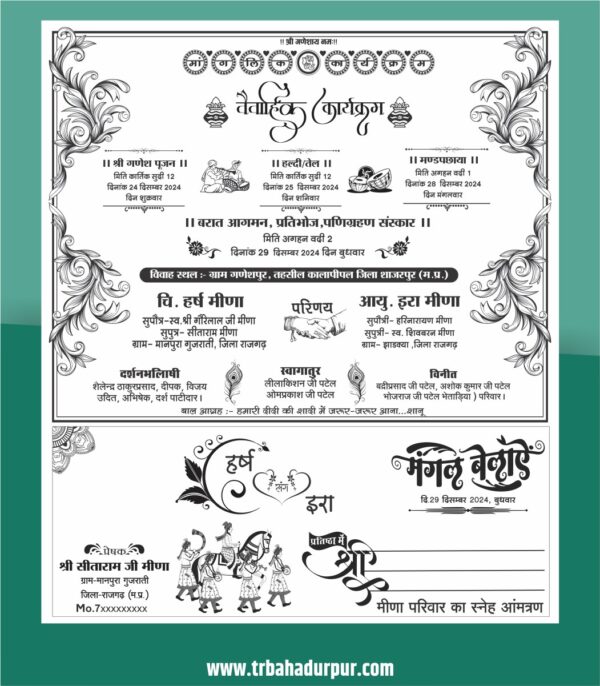 !! श्री गणेशाय नमः !!
मांगलिक कार्यक्रम
वैवाहिक कार्यक्रम
।। श्री गणेश पूजन ।।
मिति कार्तिक सुदी 12
दिनांक 24 दिसम्बर 2024
दिन शुक्रवार
।। हल्दी/तेल ।।
मिति कार्तिक सुदी 12
दिनांक 25 दिसम्बर 2024
दिन शनिवार
।। मण्डपछाया ।।
मिति अगहन वदी 1
दिनांक 28 दिसम्बर 2024
दिन मंगलवार
।। बरात आगमन, प्रतिभोज,पणिग्रहण संस्कार ।।
मिति अगहन वदी 2
दिनांक 29 दिसम्बर 2024 दिन बुधवार
विवाह स्थल :- ग्राम गणेशपुर, तहसील कालापीपल जिला शाजरपुर (म.प्र.)
चि. हर्ष मीणा
सुपौत्र-स्व.श्री गौरिलाल जी मीणा
सुपुत्र- सीताराम मीणा
ग्राम- मानपुरा गुजराती, जिला राजगढ़
परिणय
आयु. इरा मीणा
सुपौत्री- हरिनारायण मीणा
सुपुत्री- स्व. शिवबरन मीणा
ग्राम- झाडक्या ,जिला राजगढ़
दर्शनभलिाषी
शेलेन्द्र ठाकुरप्रसाद, दीपक, विजय
उदित, अभिषेक, दर्श पाटीदार।
स्वागातुर
लीलाकिशन जी पटेल
ओमप्रकाश जी पटेल
विनीत
बद्रीप्रसाद जी पटेल, अशोक कुमार जी पटेल
भोजराज जी पटेल भेताड़िया ) परिवार।
बाल आग्रह :- हमारी दीदी की शादी में जरूर-जरूर आना...शानू
हर्ष
संग
इरा
मंगल बेलाऐं
दि.29 दिसम्बर 2024, बुधवार
प्रेषक
श्री सीताराम जी मीणा
ग्राम-मानपुरा गुजराती
जिला-राजगढ़ (म.प्र.)
Mo.7xxxxxxxxx
प्रतिष्ठा में
श्री
मीणा परिवार का स्नेह आंमत्रण
www.trbahadurpur.com